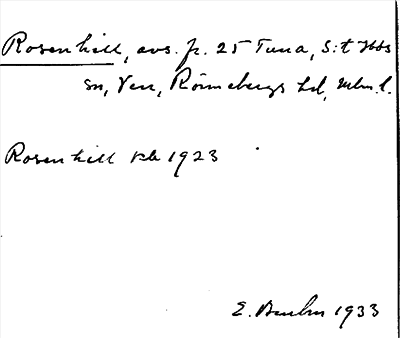 Rosenhill, avs. fr. 25 Tuna, S:t Ibbs
sn, Ven, Rönnebergs hd, Mlm. l.
Rosenhill kb 1923
E. 1933